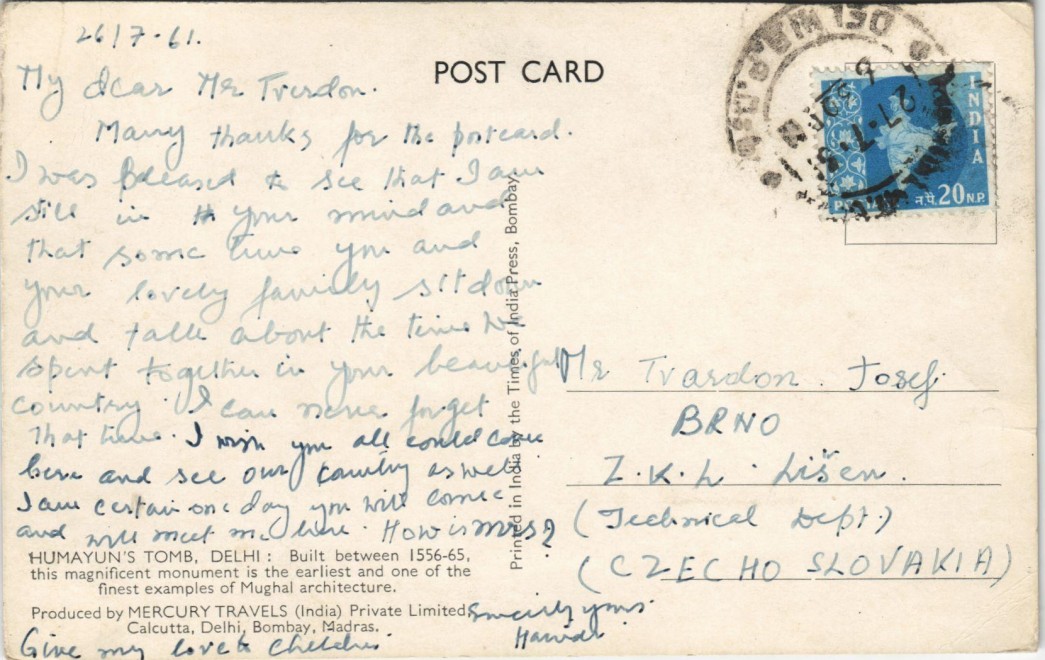 26/7-61.
POST CARD
My dear Mr Tvrdon.
Many thanks for the postcard.
I was pleased to see that I am
still in your mind and
that some time you and
your lovely family sit down
and talk about the time we
spent together in your beautiful
country. I can never forget
that time. I wish you all could come
here and see our country as well
I am certain one day you will come
and will meet me here. How is mrs?
HUMAYUN'S TOMB, DELHI : Built between 1556-65,
this magnificent monument is the earliest and one of the
finest examples of Mughal architecture.
Produced by MERCURY TRAVELS (India) Private Limited,
Calcutta, Delhi, Bombay, Madras.
Sincerely yours
Give my love to children
Printed in India by the Times of India Press, Bombay.
INDIA
न.पै. 20 N.P.
Mr Tvardon. Josef
BRNO
Z.K.L. Lišen.
(Technical Dept.)
(CZECHO SLOVAKIA)